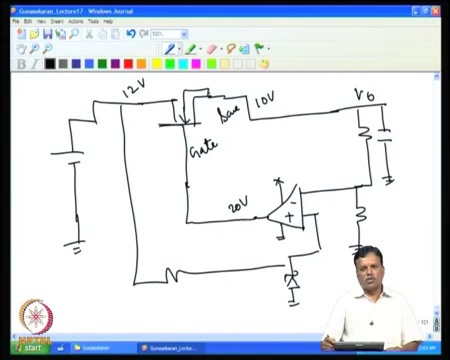 Gunasekaran_Lecture17 - Windows Journal
File Edit View Insert Actions Tools Help
100%
B I
12V
10V
V0
Gate
20V
-
+
NPTEL
start
Gunasekaran
Gunasekaran_Lectur...